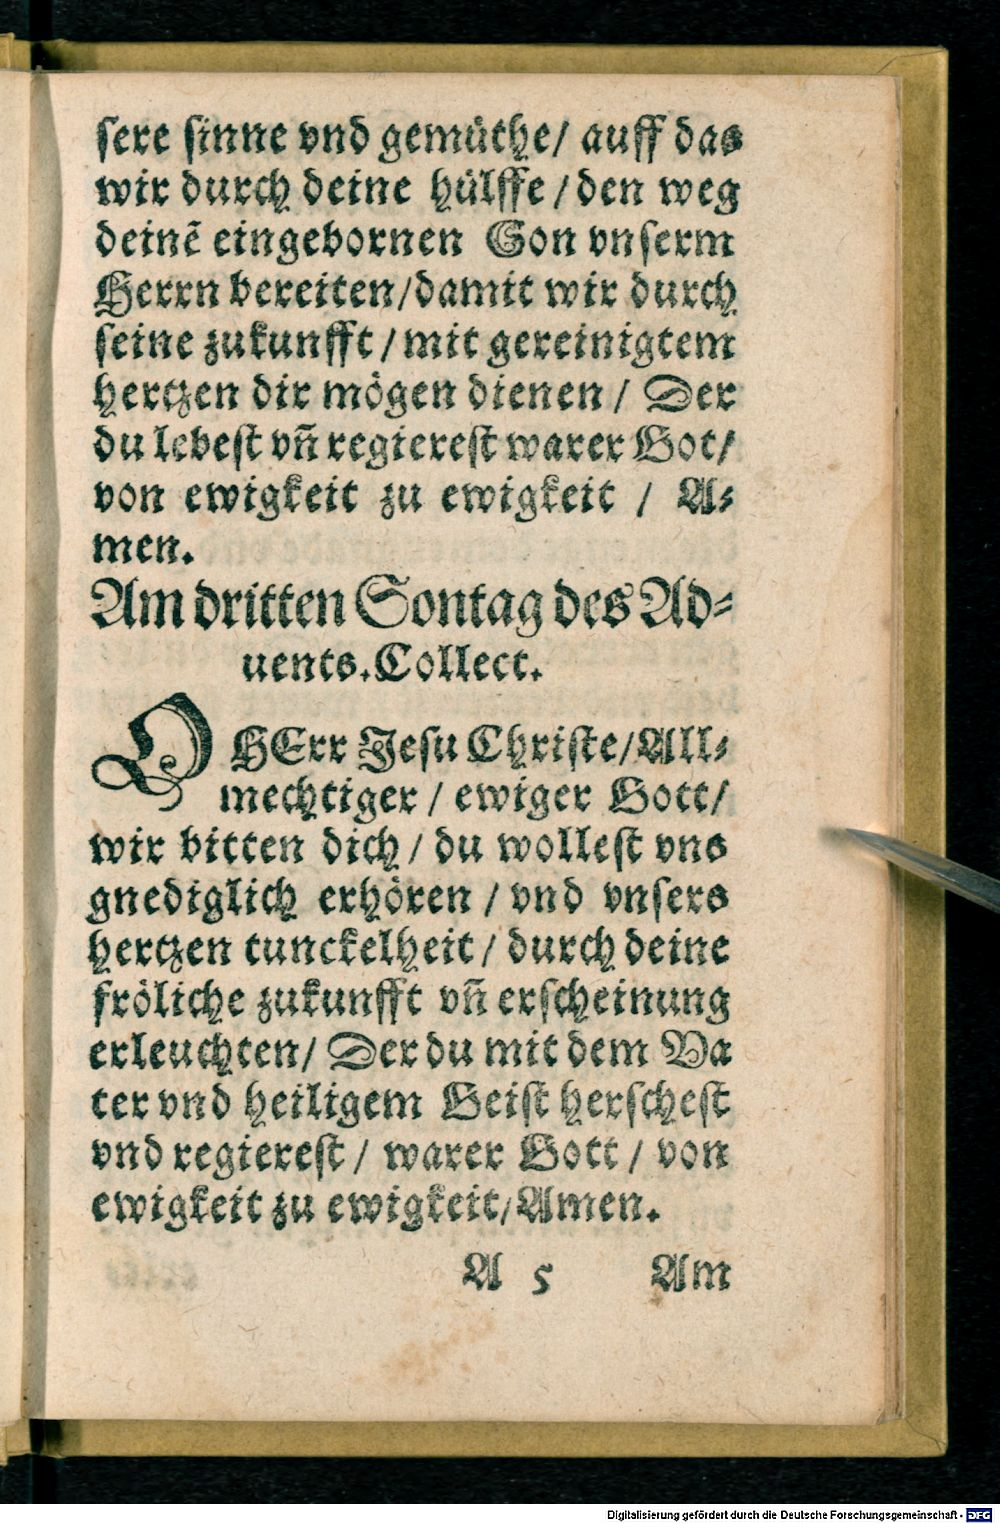 sere sinne vnd gemüthe/ auff das
wir durch deine hülffe / den weg
deinē eingebornen Son vnserm
Herrn bereiten/damit wir durch
seine zukunfft / mit gereinigtem
hertzen dir mögen dienen / Der
du lebest vn̄ regierest warer Got/
von ewigkeit zu ewigkeit / A⸗
men.
Am dritten Sontag des Ad⸗
uents. Collect.
O HErr Jesu Christe/All⸗
mechtiger / ewiger Gott/
wir bitten dich / du wollest vns
gnediglich erhören / vnd vnsers
hertzen tunckelheit / durch deine
fröliche zukunfft vn̄ erscheinung
erleuchten/ Der du mit dem Va
ter vnd heiligem Geist herschest
vnd regierest / warer Gott / von
ewigkeit zu ewigkeit/Amen.
A 5 Am
Digitalisierung gefördert durch die Deutsche Forschungsgemeinschaft - DFG